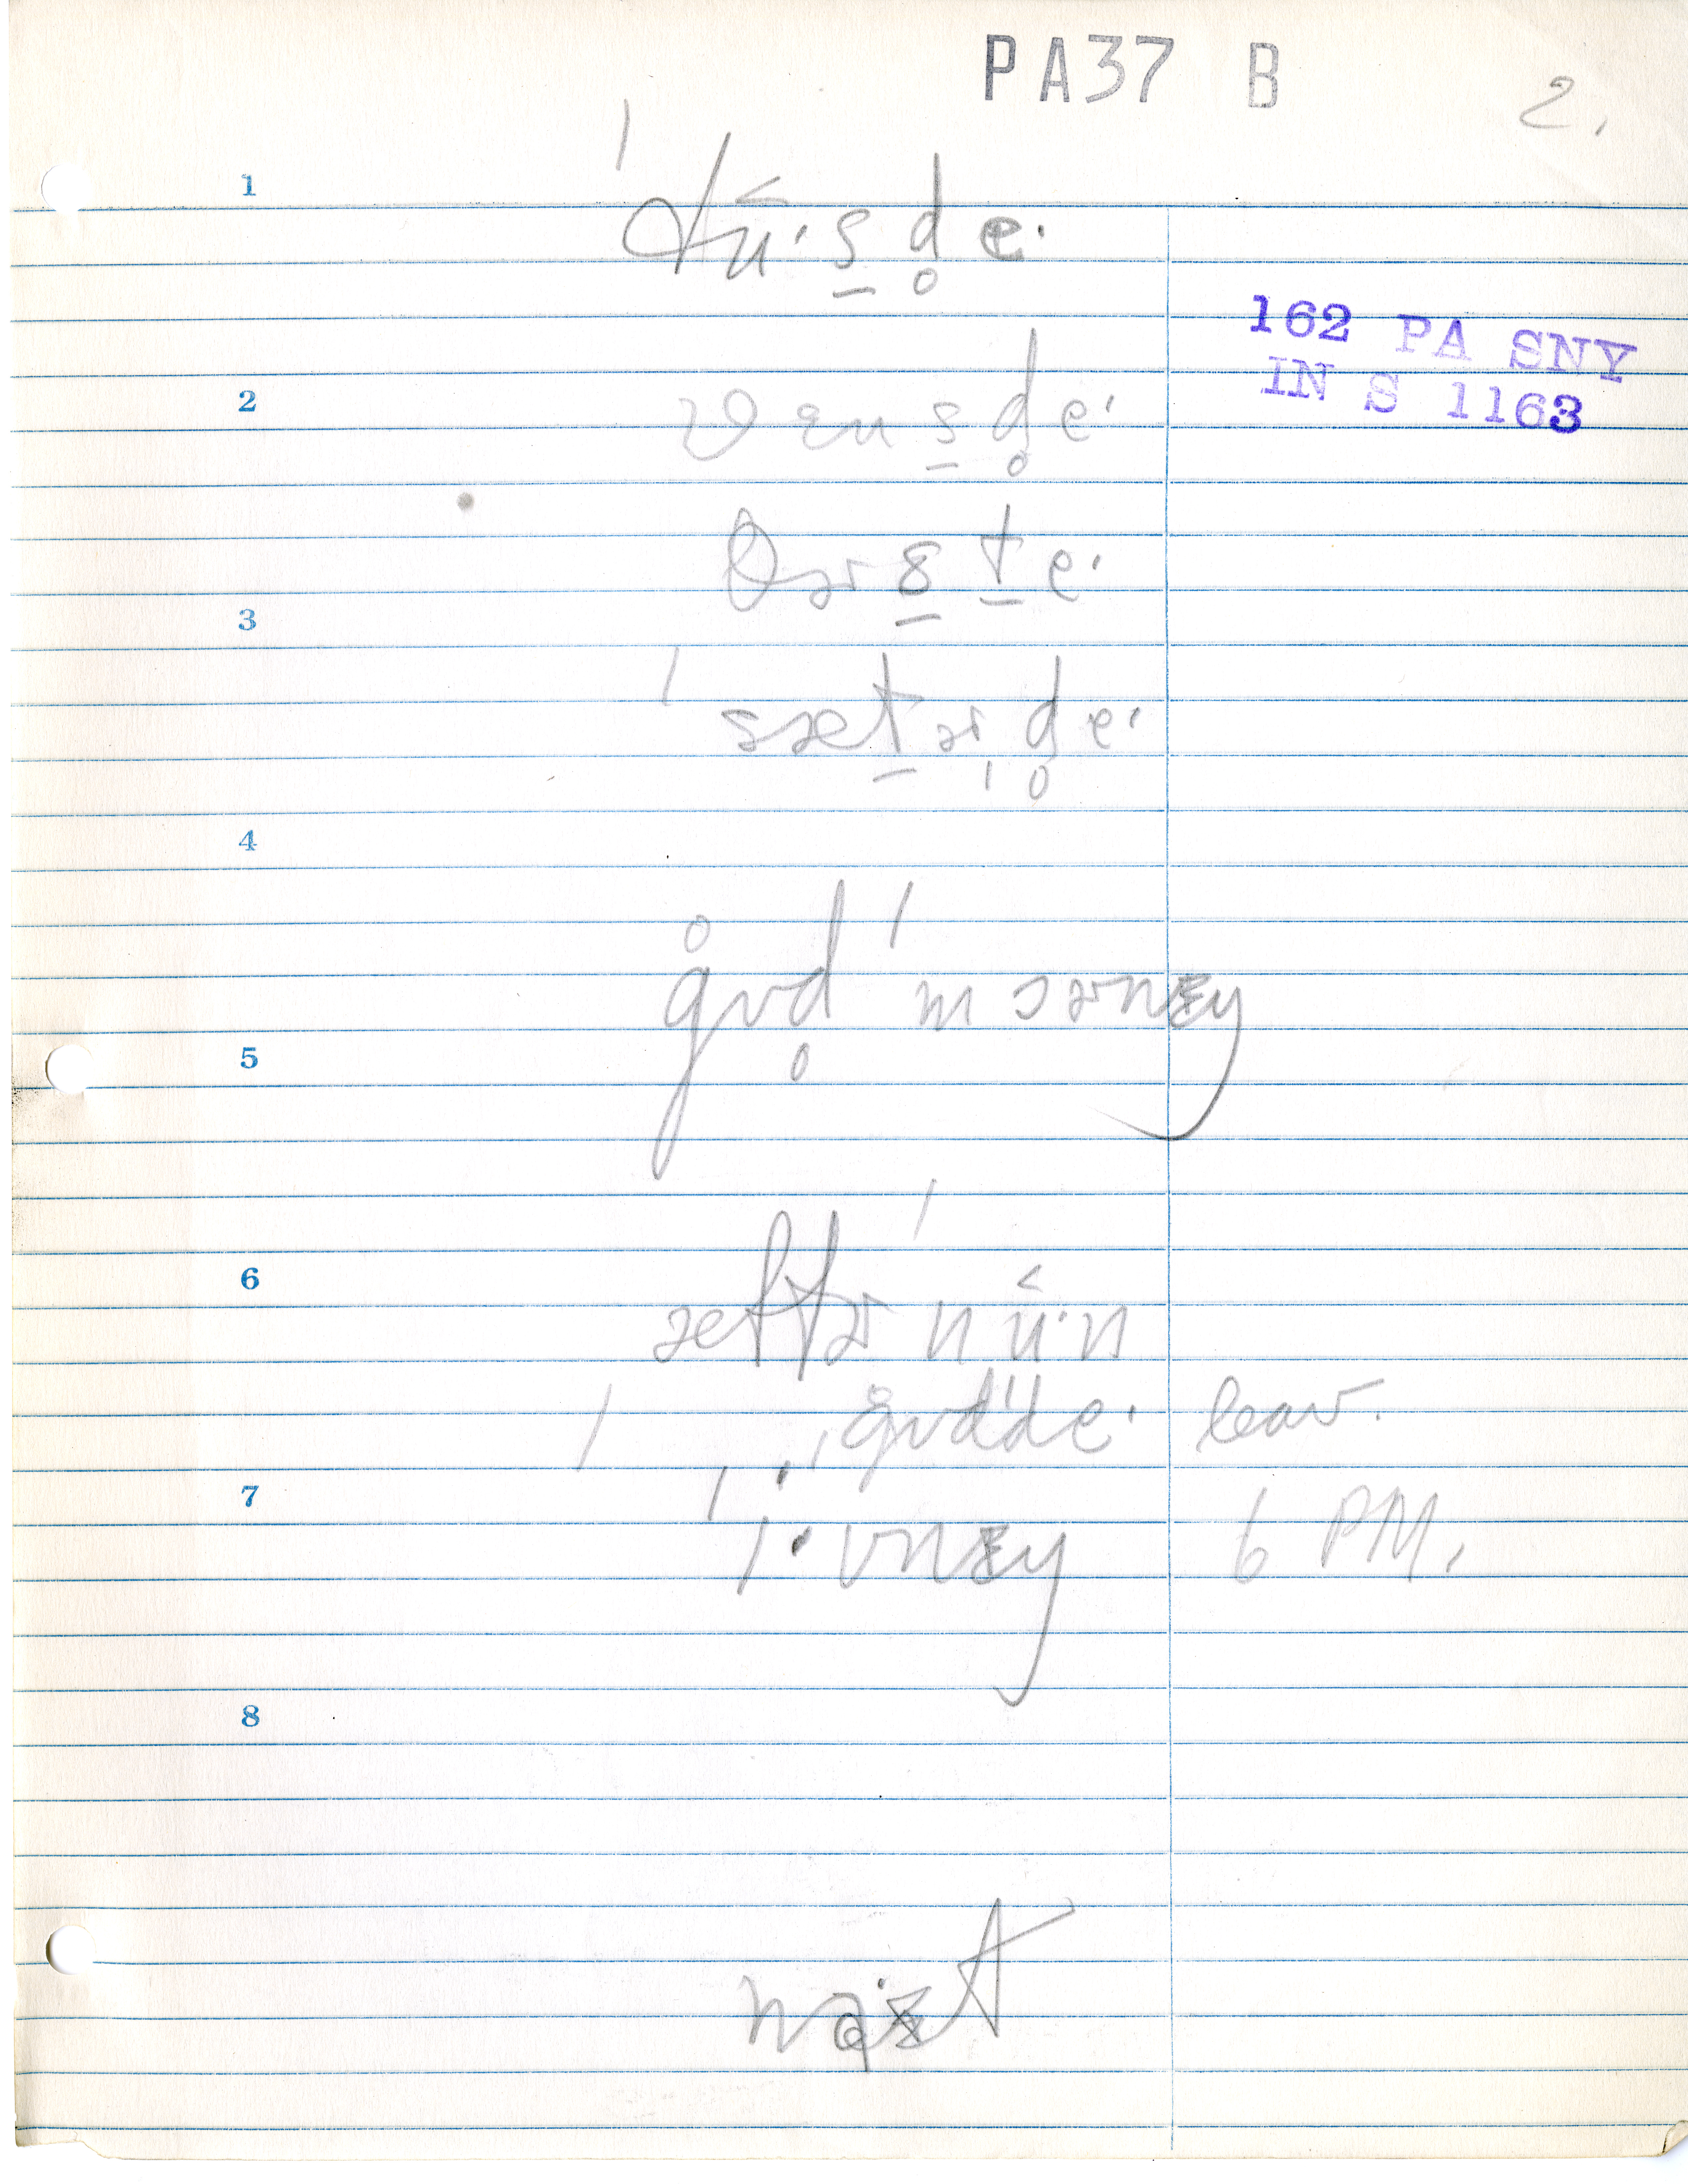 PA37 B 2.
1 ˈtʉ˂·s̱d̥e·
162 PA SNY
IN S 1163
2 wɛns̱d̥e·
θɚs̱ṯe·
3
ˈsæṯɚd̥e·
4
g̊ʊd̥ ˈmɔɚnɪŋ
5
6 æftɚˈnʉ˂·n
ˌg̊ʊdˈde· leav.
7 i·vnɪŋ 6 PM.
8
nɑ·ɪt